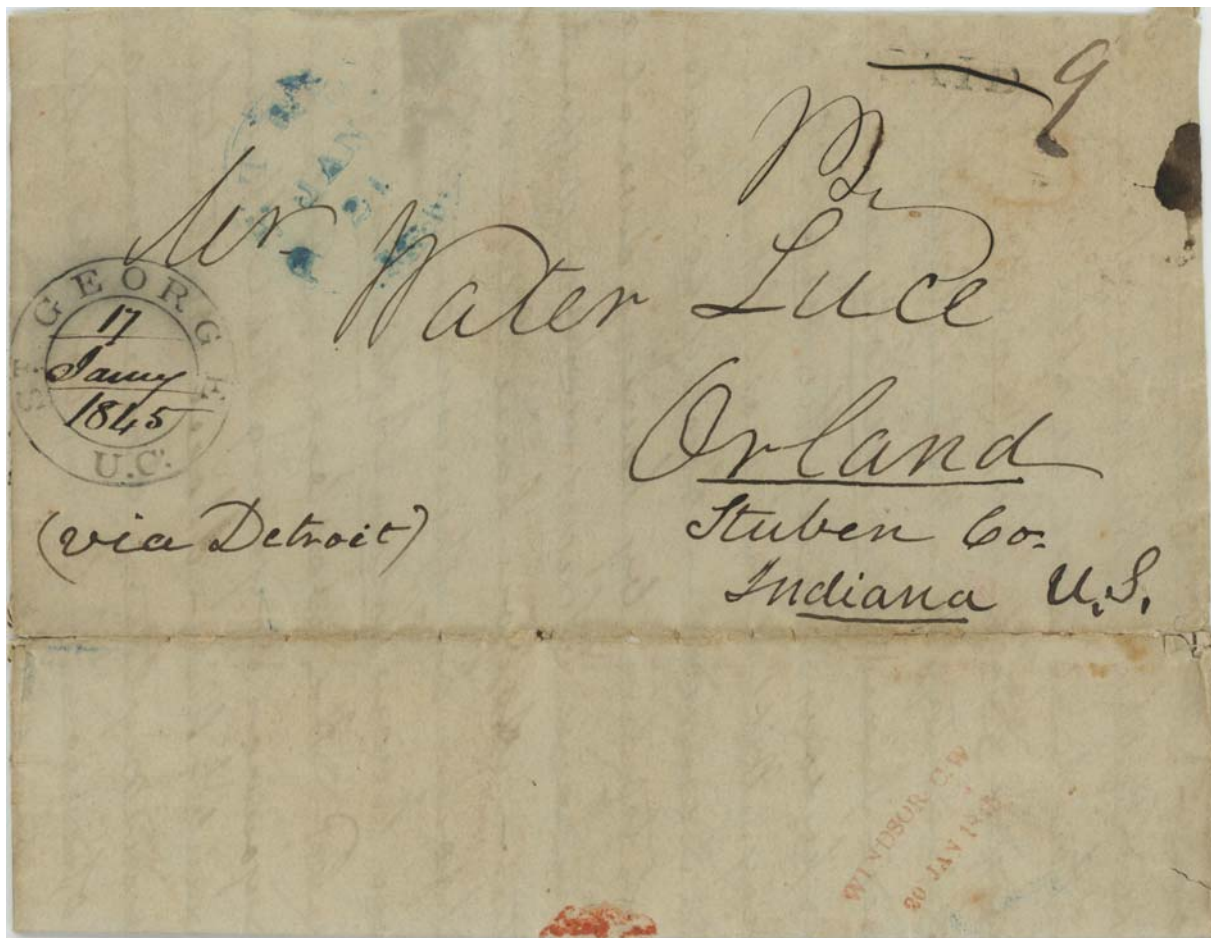 PAID 9
JAN
21
Mr.
Water Luce
ST GEORGE
17
Jany
1845
U.C.
Orland
(via Detroit)
Stuben Co.
Indiana U.S.
WINDSOR C.W
20 JAN 1845